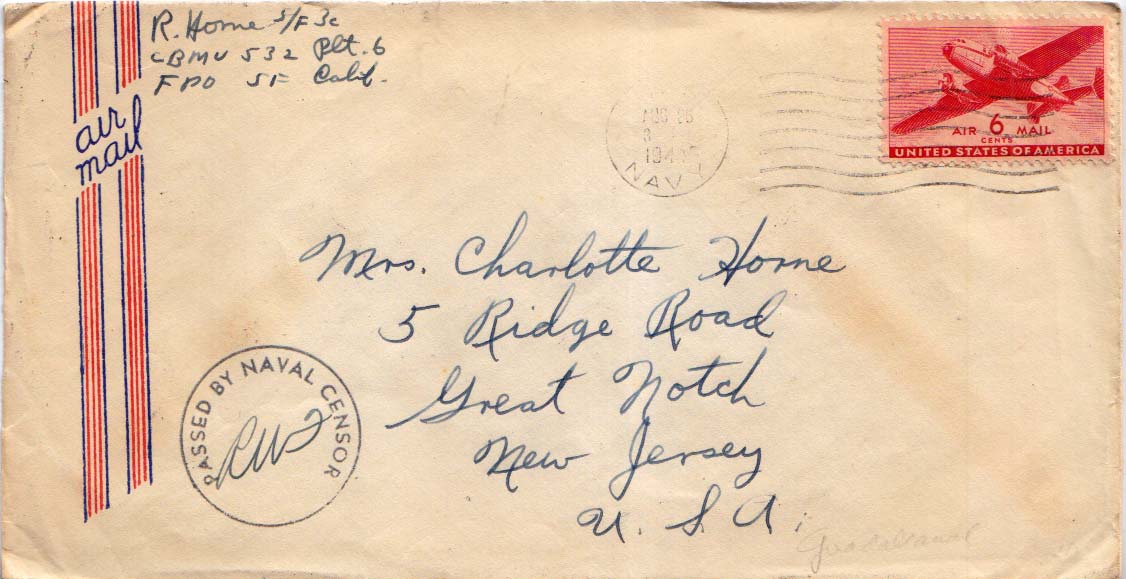 R. Horne S/F 3c
CBMU 532 Plt. 6
FPO SF Calif.
air
mail
AUG 26
194
NAVY
AIR 6 MAIL
CENTS
UNITED STATES OF AMERICA
Mrs. Charlotte Horne
5 Ridge Road
Great Notch
New Jersey
U. S. A.
PASSED BY NAVAL CENSOR
Guadalcanal